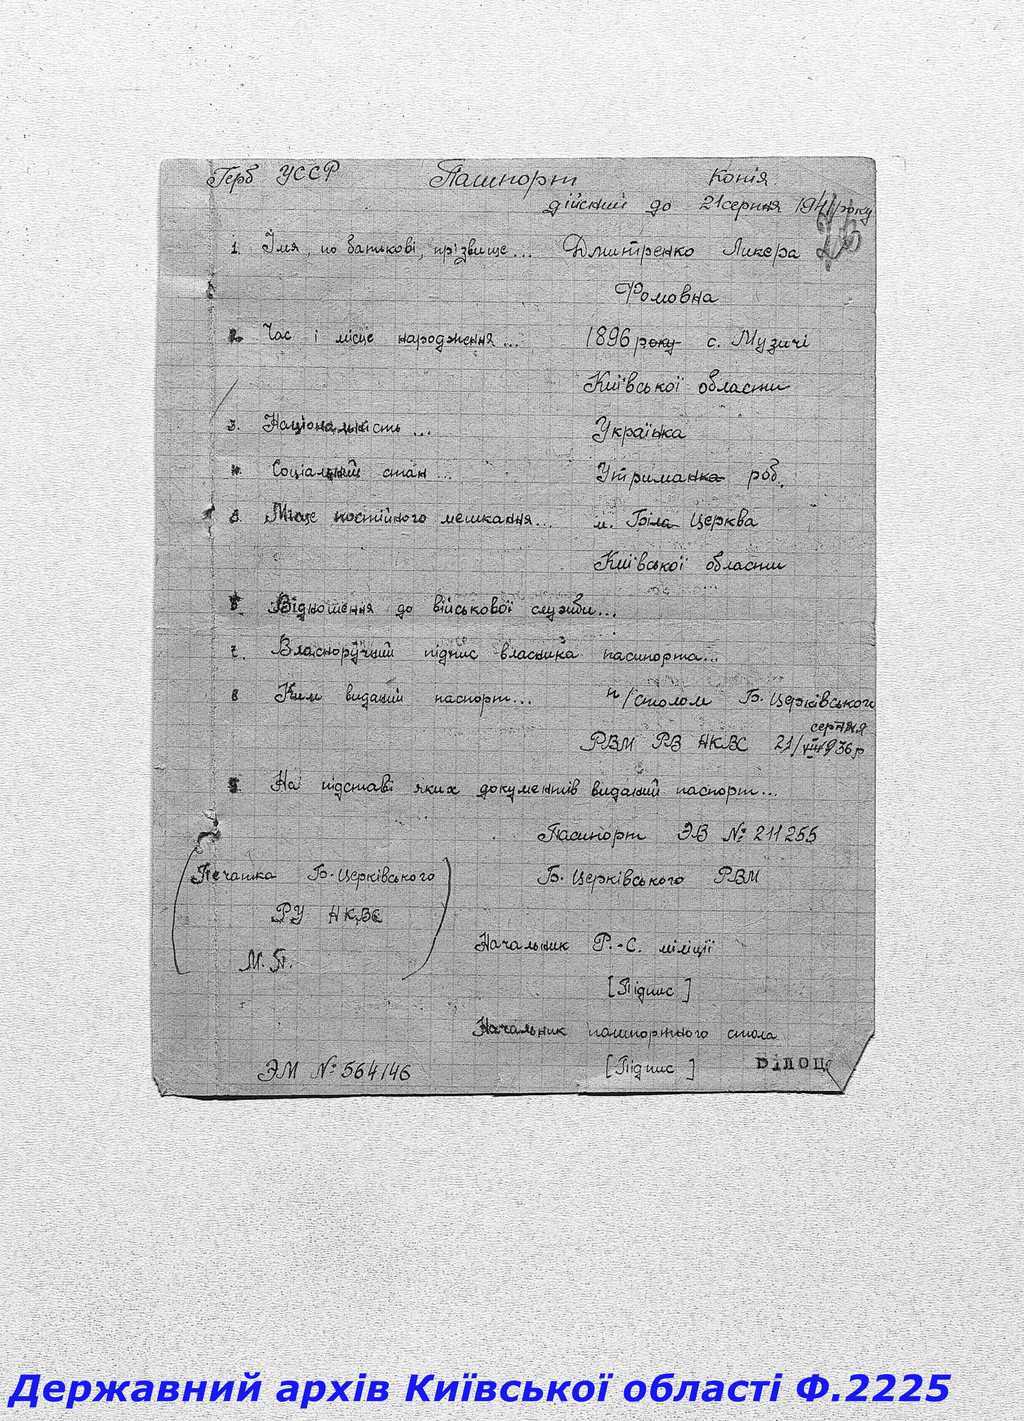 Герб УССР Пашпорт Копія.
дійсний до 21 серпня 1941 року
23
1. Імя, по батькові, прізвище... Дмитренко Ликера
Фомовна
2. Час і місце народження... 1896 року с. Музичі
Київської области
3. Національність ... Українка
4. Соціальний стан... Утриманка роб.
5. Місце постійного мешкання... м. Біла Церква
Київської области
6. Відношення до військової служби...
7. Власноручний підпис власника пашпорта...
8 Ким виданий паспорт... п/столом Б. Церківського
серпня
РВМ РВ НКВС 21/VIII 1936 р
9. На підставі яких документів виданий паспорт...
Пашпорт ЭВ № 211255
Печатка Б-Церківського Б. Церківського РВМ
РУ НКВС
Начальник Р.-С. міліції
М.П.
[Підпис]
Начальник пашпортного стола
ЭМ № 564146 [Підпис] Білоц
Державний архів Київської області Ф.2225